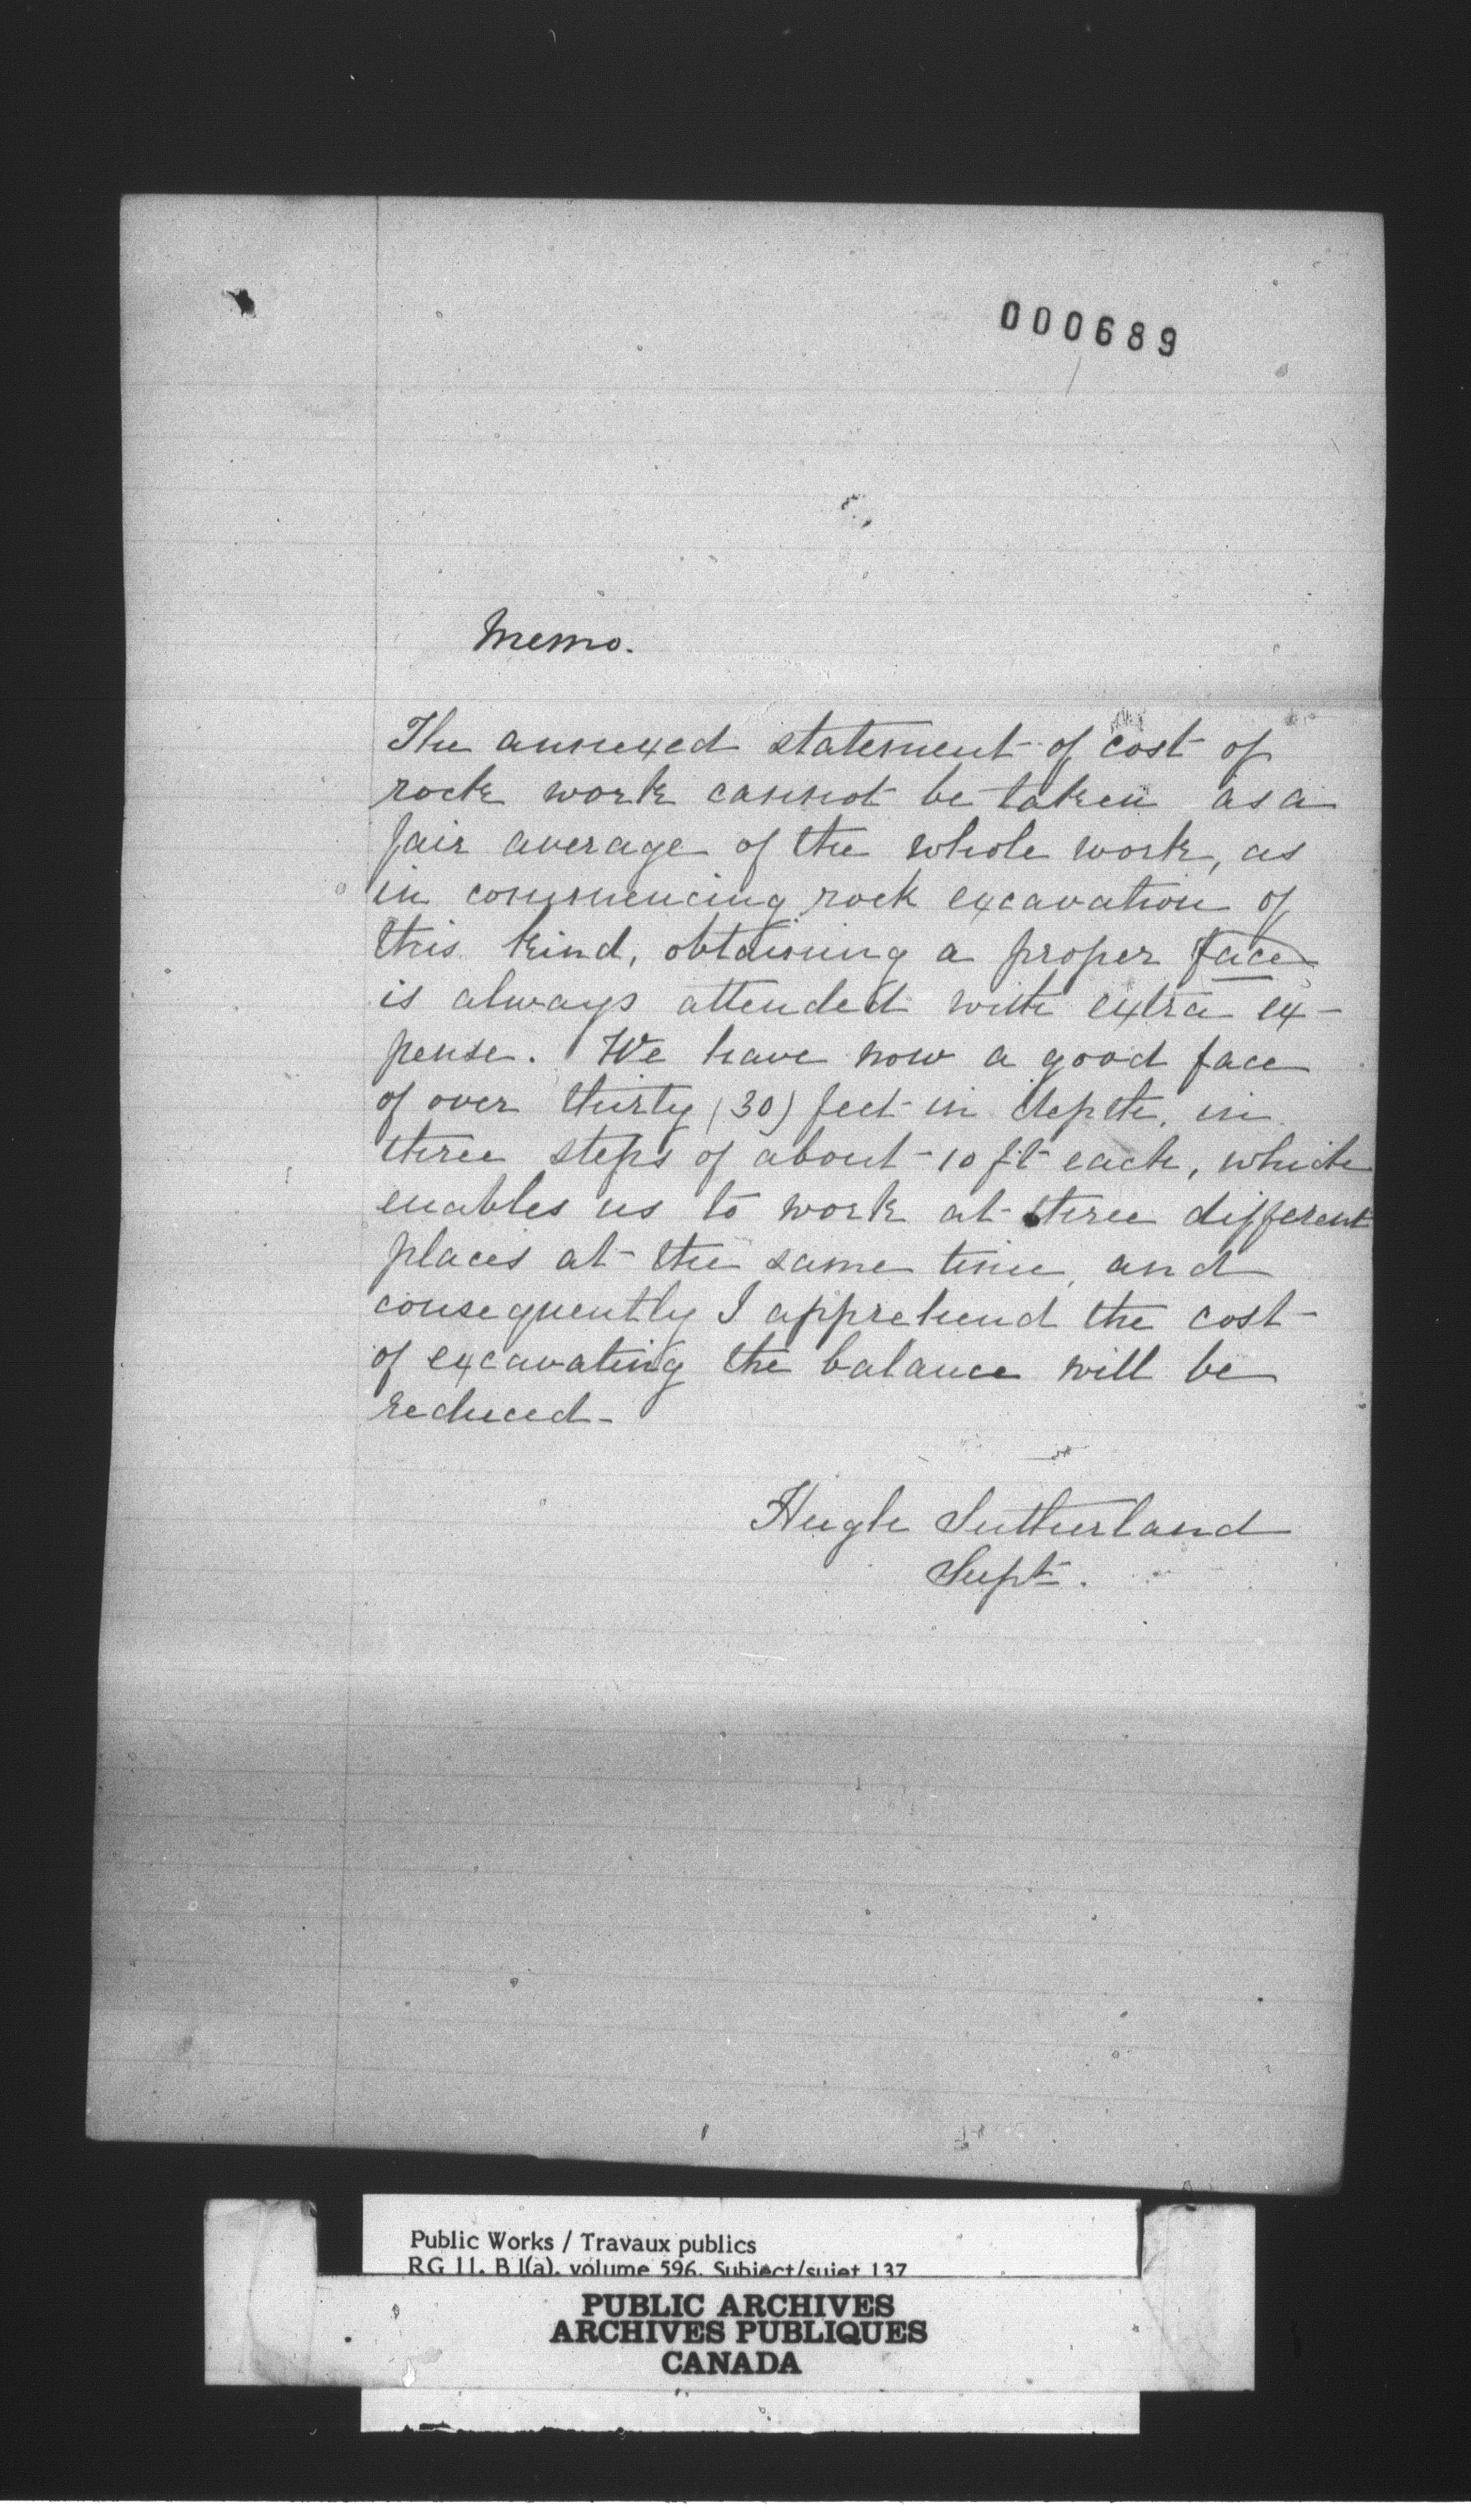 000689
Memo.
The annexed statement of cost of
rock work cannot be taken as a
fair average of the whole work, as
in commencing rock excavation of
this kind, obtaining a proper face
is always attended with extra ex-
pense. We have now a good face
of over thirty (30) feet in depth, in
three steps of about 10 ft each, which
enables us to work at three different
places at the same time, and
consequently I apprehend the cost
of excavating the balance will be
reduced-
Hugh Sutherland
Supt.
Public Works / Travaux publics
RG 11, B 1(a), volume 596, Subject/sujet 137
PUBLIC ARCHIVES
ARCHIVES PUBLIQUES
CANADA